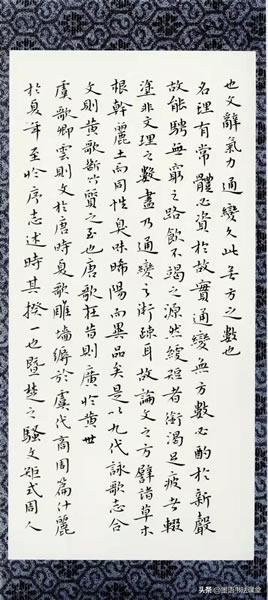 也文辭氣力通變久此無方之數也
名理有常體必資於故實通變無方數必酌於新聲
故能騁無窮之路飲不竭之源然綆短者銜渴足疲者輟
塗非文理之數盡乃通變之術疎耳故論文之方譬諸草木
根幹麗土而同性臭味晞陽而異品矣是以九代詠歌志合
文則黃歌斷竹質之至也唐歌在昔則廣於黃世
虞歌卿雲則文於唐時夏歌雕墻縟於虞代商周篇什麗
於夏年至於序志述時其揆一也暨楚之騷文矩式周人
头条 @墨语书法课堂